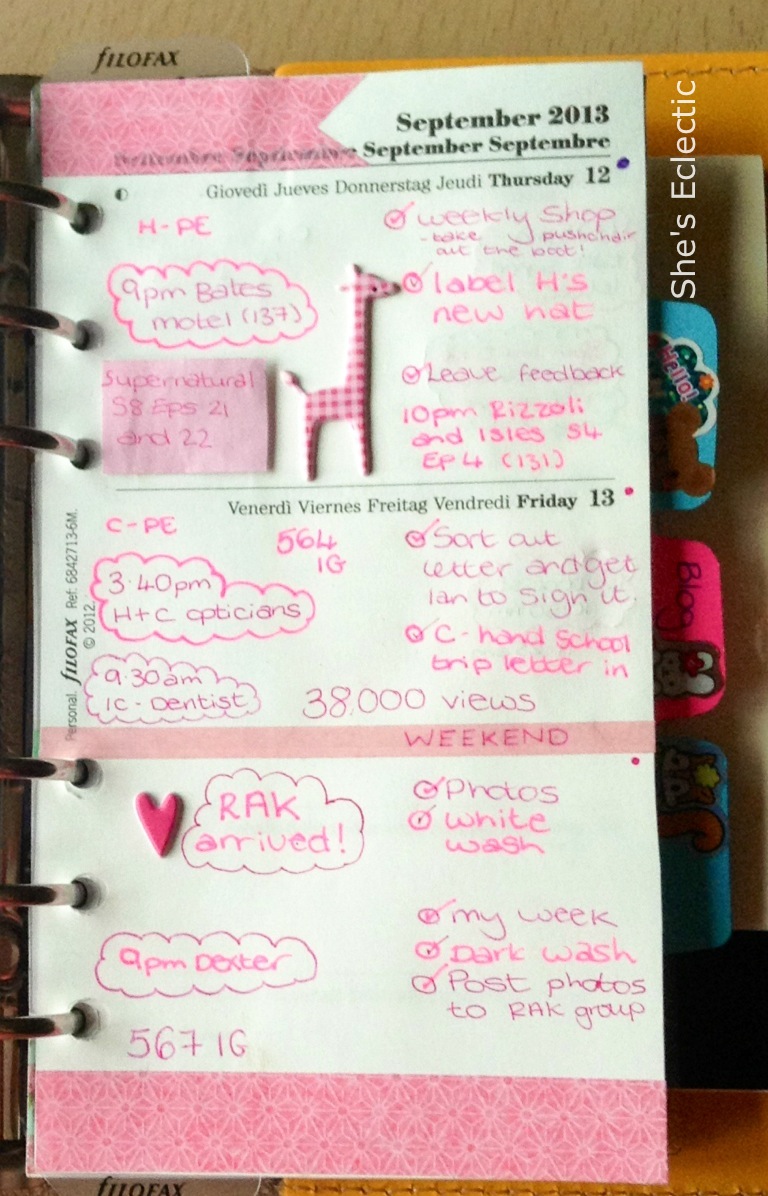 FILOFAX
September 2013
September Septembre
Giovedì Jueves Donnerstag Jeudi Thursday 12
H-PE
9pm Bates
motel (137)
Supernatural
S8 Eps 21
and 22
weekly Shop
- take pushchair
out the boot!
label H's
new hat
Leave feedback
10pm Rizzoli
and Isles S4
EP 4 (131)
Venerdì Viernes Freitag Vendredi Friday 13
C-PE
564
IG
3.40pm
H+C opticians
9.30am
IC - Dentist
Sort out
letter and get
Ian to sign it.
C - hand School
trip letter in
38,000 views
WEEKEND
RAK
arrived!
Photos
white
wash
9pm Dexter
my week
Dark wash
Post photos
to RAK group
567 IG
Personal. FILOFAX Ref: 6842713-6M.
© 2012.
She's Eclectic
Hello!
Blog
FILOFAX